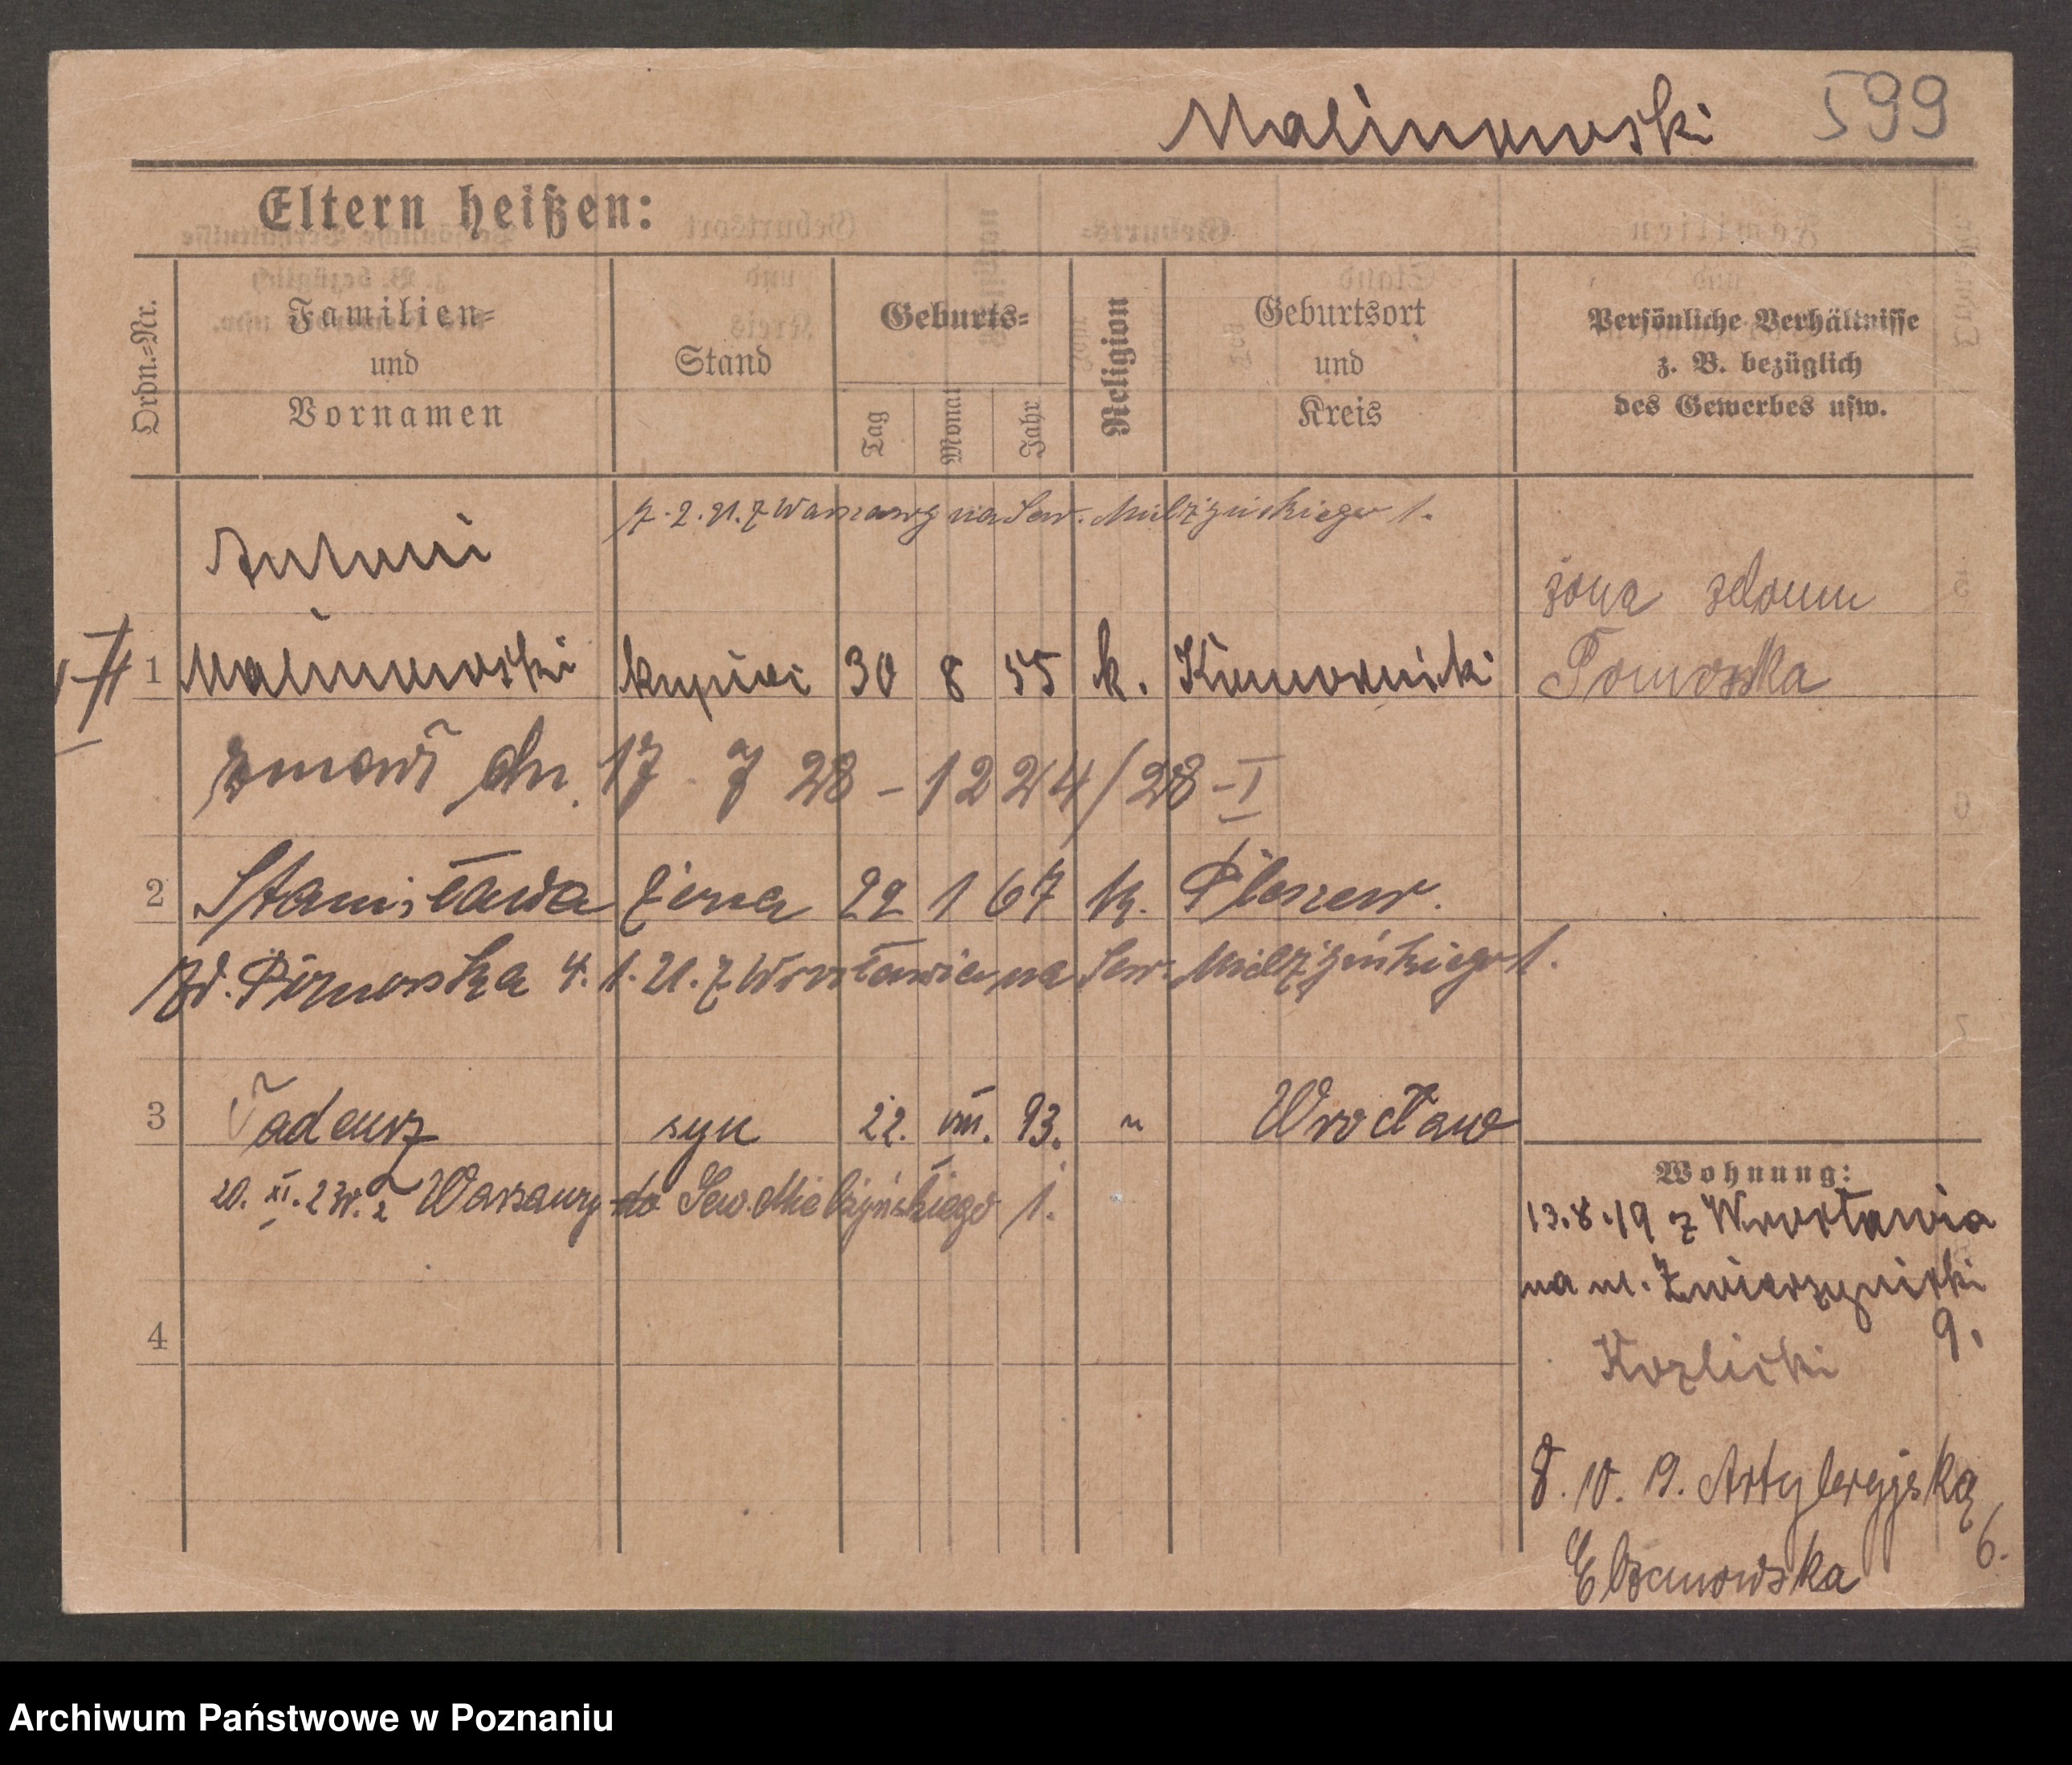 Malinowski 599
Eltern heißen:
Ordn.-Nr.
Familien-
und
Vornamen
Stand
Geburts-
Tag
Monat
Jahr
Religion
Geburtsort
und
Kreis
Persönliche Verhältnisse
z. B. bezüglich
des Gewerbes usw.
7. 2. 21. z Warszawy na Sew. Mielżyńskiego 1.
Antoni
żona zdomu
1 Malinowski kupiec 30 8 55 k. Komorniki
zmarł dn. 17 7 28 - 1224/28 - I
2 Stanisława żona 22 1 67 k. Pleszew.
4. 1. 21. z Wrocławia na Sew. Mielżyńskiego 1.
3 Tadeusz syn 22. VIII. 93. " Wrocław
20. XI. 23 r. z Warszawy do Sew. Mielżyńskiego 1.
4
Wohnung:
13.8.19 z Wrocławia
na ul. Zwierzyniecki
9.
Kozlicki
8. 10. 19. Artyleryjską
6.
Elzanowska
Archiwum Państwowe w Poznaniu